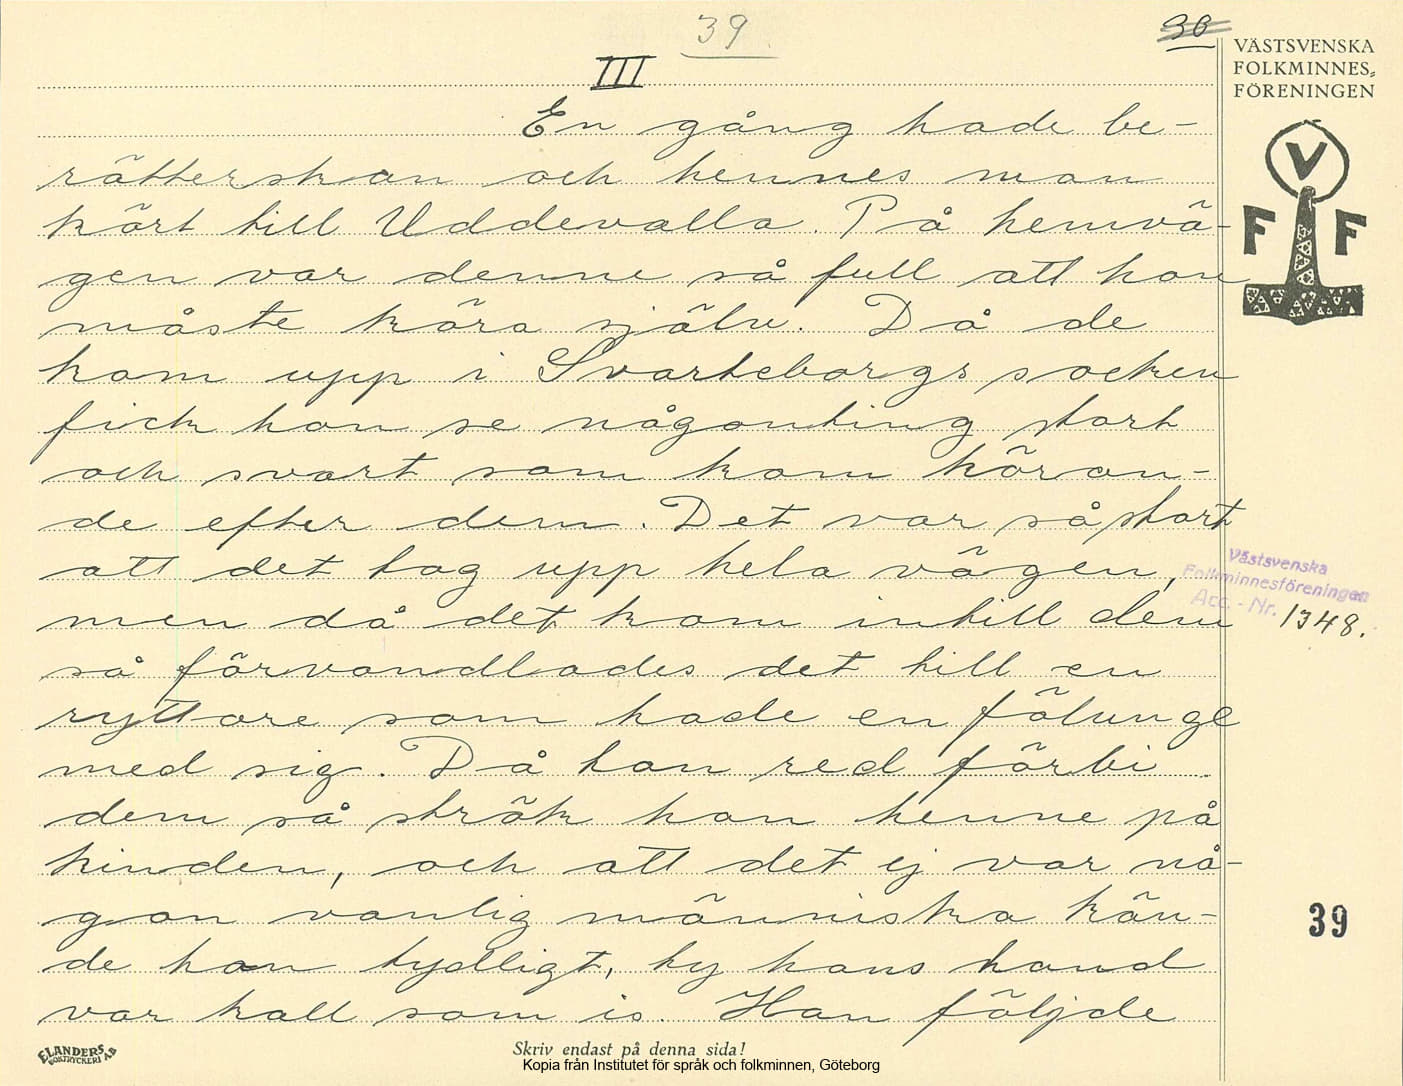 39
30
VÄSTSVENSKA
FOLKMINNES-
FÖRENINGEN
V
F F
III
En gång hade be-
rätterskan och hennes man
kört till Uddevalla. På hemvä-
gen var denne så full att hon
måste köra själv. Då de
kom upp i Svarteborgs socken
fick hon se någonting stort
och svart som kom köran-
de efter dem. Det var så stort
att det tog upp hela vägen,
men då det kom intill dem
så förvandlades det till en
ryttare som hade en fölunge
med sig. Då han red förbi
dem så strök han henne på
kinden, och att det ej var nå-
gon vanlig människa kän-
de hon tydligt, ty hans hand
var kall som is. Han följde
Västsvenska
Folkminnesföreningen
Acc. - Nr. 1348.
39
ELANDERS
BOKTRYCKERI AB
Skriv endast på denna sida!
Kopia från Institutet för språk och folkminnen, Göteborg